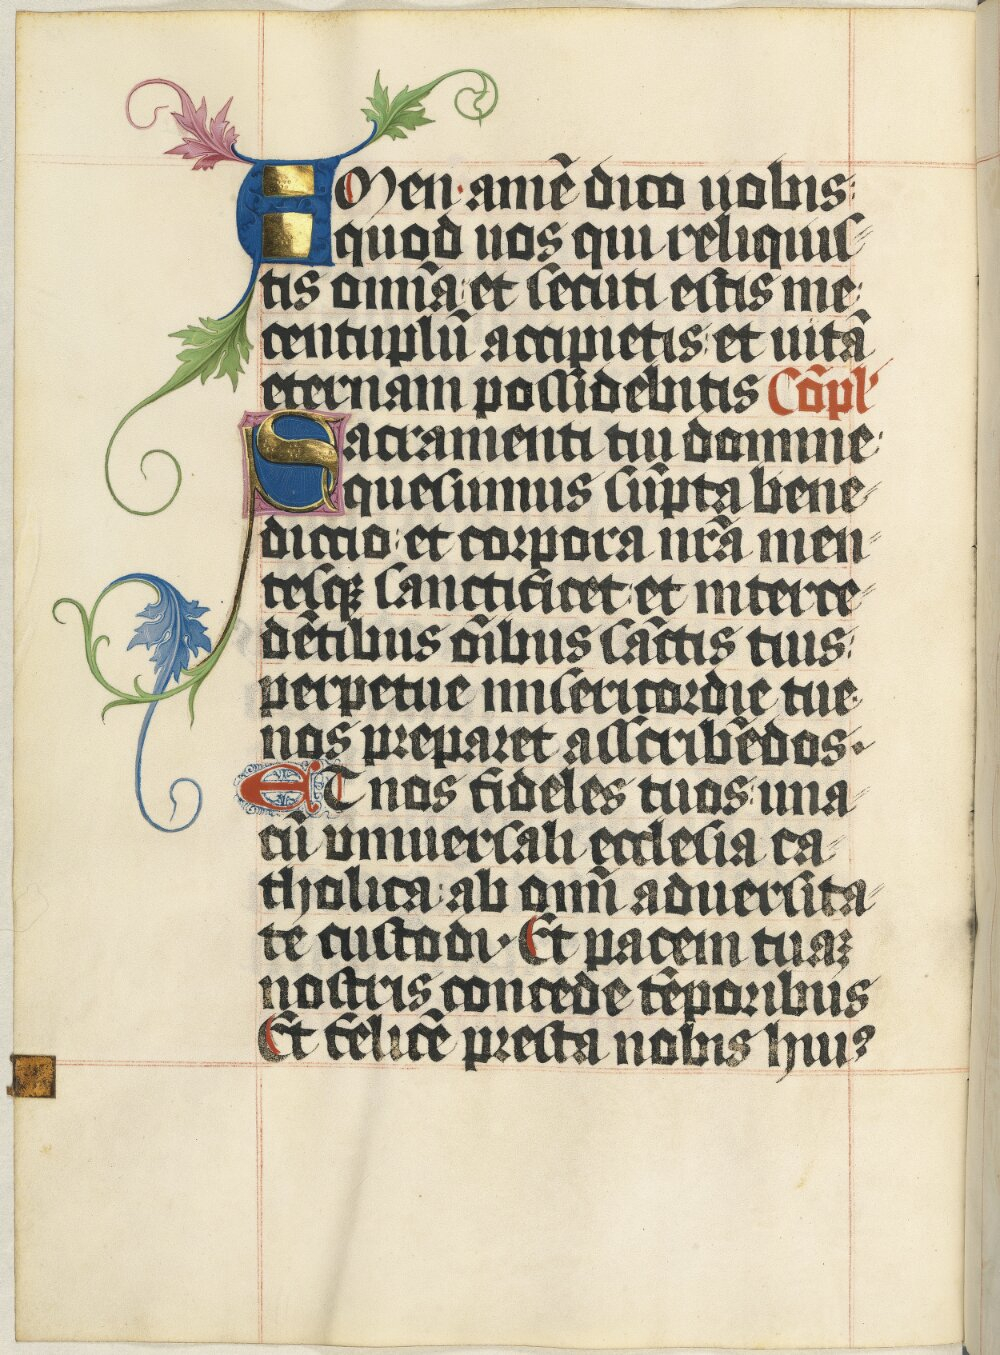 AMen· amē dico uobis:
quod uos qui reliquis⸗
tis omīa: et secuti estis me:
centuplū accipietis: et uitā
eternam possidebitis Cōpl'
Sacramenti tui domine:
quesumus sūpta bene⸗
diccio: et corpora nrā men⸗
tesqꝫ sanctificet: et interce⸗
dētibus oībus sāctis tuis:
perpetue misericordie tue
nos preparet asscribēdos·
ET nos fideles tuos: una
cū vniuersali ecclesia ca⸗
tholica: ab omī aduersita⸗
te custodi· Et pacem tuaꝫ
nostris concede tēporibus
Et felicē presta nobis huiꝰ